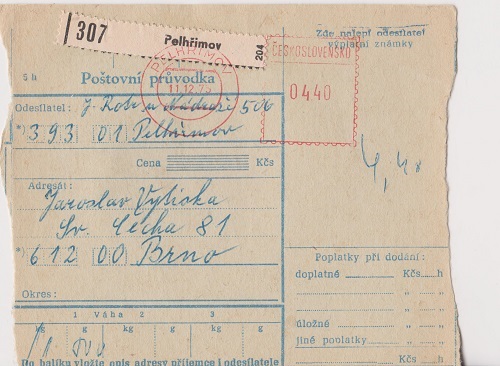 307
Pelhřimov
204
Zde nalepí odesílatel
výplatní známky
PELHŘIMOV
11.12.75
ČESKOSLOVENSKO
0440
5 h
Poštovní průvodka
Odesílatel: J. u Nádraží 506
*) 393 01 Pelhřimov
Cena Kčs
4,40
Adresát:
Jaroslav Vytiska
Sv. Čecha 81
*) 612 00 Brno
Okres:
Poplatky při dodání:
doplatné Kčs h
" "
" "
úložné " "
jiné poplatky " "
Kčs h
1 Váha 2 3
kg g kg g kg g
Do balíku vložte opis adresy příjemce i odesílatele